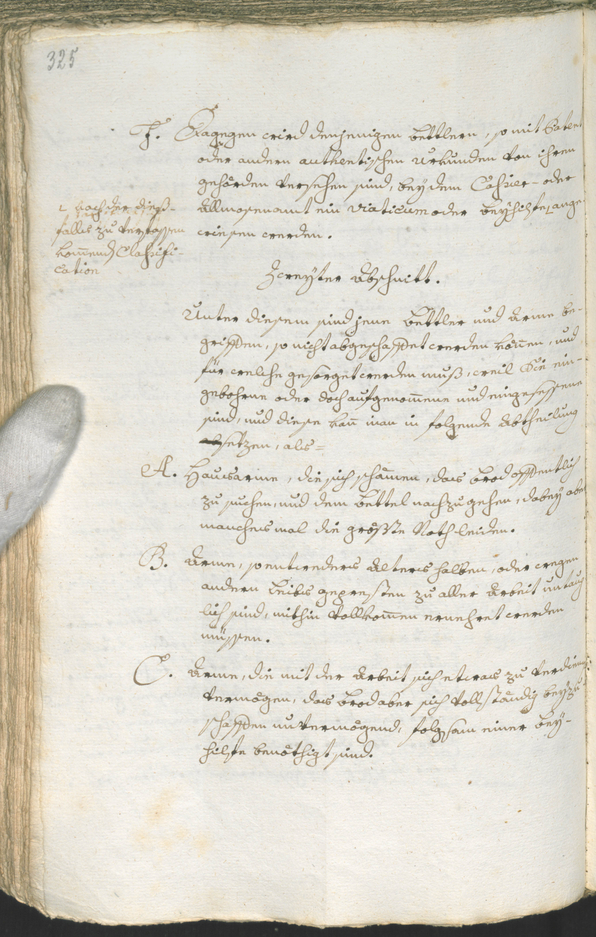 325
F. Dagegen wird denjenigen Bettlern, so mit Paten
oder andern authentischen Urkunden von ihren
gehörden versehen sind, bey dem Cassier- oder
Allmosenamt ein viaticum oder beyhilfe ange
wiesen werden.
nach der dieß-
falls zu verfassen
kom̅end Classifi-
cation
Zweyter Abschnitt.
Unter diesem sind jene Bettler und Arme be-
griffen, so nicht abgeschaffet werden kön̅en, und
für welche gesorget werden muß, weil Sie ein-
gebohrne oder doch aufgenom̅ene und eingesessene
sind, und diese kan̅ man in folgende Abtheilung
setzen, als=
A. Hausarme, die sich schämen, das brod öffentlich
zu suchen, und dem bettel nachzugehen, dabey aber
manchesmal die größte Noth leiden.
B. Arme, so entweders Alters halben, oder wegen
andern leibs gepresten zu aller Arbeit untaug
lich sind, mithin vollkom̅en ernehret werden
müssen.
C. Arme, die mit der Arbeit sich etwas zu verdienen
vermögen, das brod aber sich vollständig beyzu
schaffen unvermögend, folgsam einer bey-
hilfe benöthigt sind.